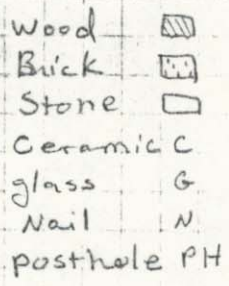 Wood
Brick
Stone
Ceramic C
glass G
Nail N
posthole PH